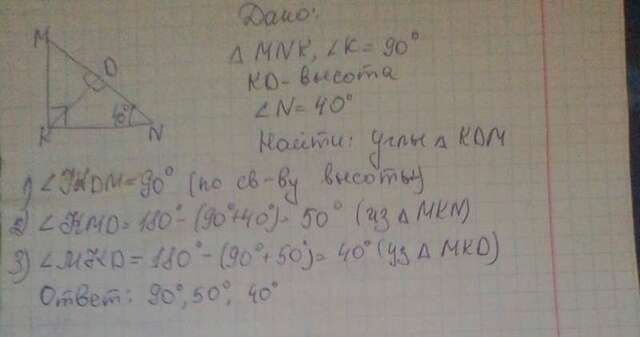 Дано:
M
△ MNK, ∠K = 90°
D
KD - высота
∠N = 40°
40°
K
N
Найти: углы △ KDM
1) ∠KDM = 90° (по св-ву высоты)
2) ∠KMD = 180° - (90° + 40°) = 50° (из △ MKN)
3) ∠MKD = 180° - (90° + 50°) = 40° (из △ MKD)
Ответ: 90°, 50°, 40°